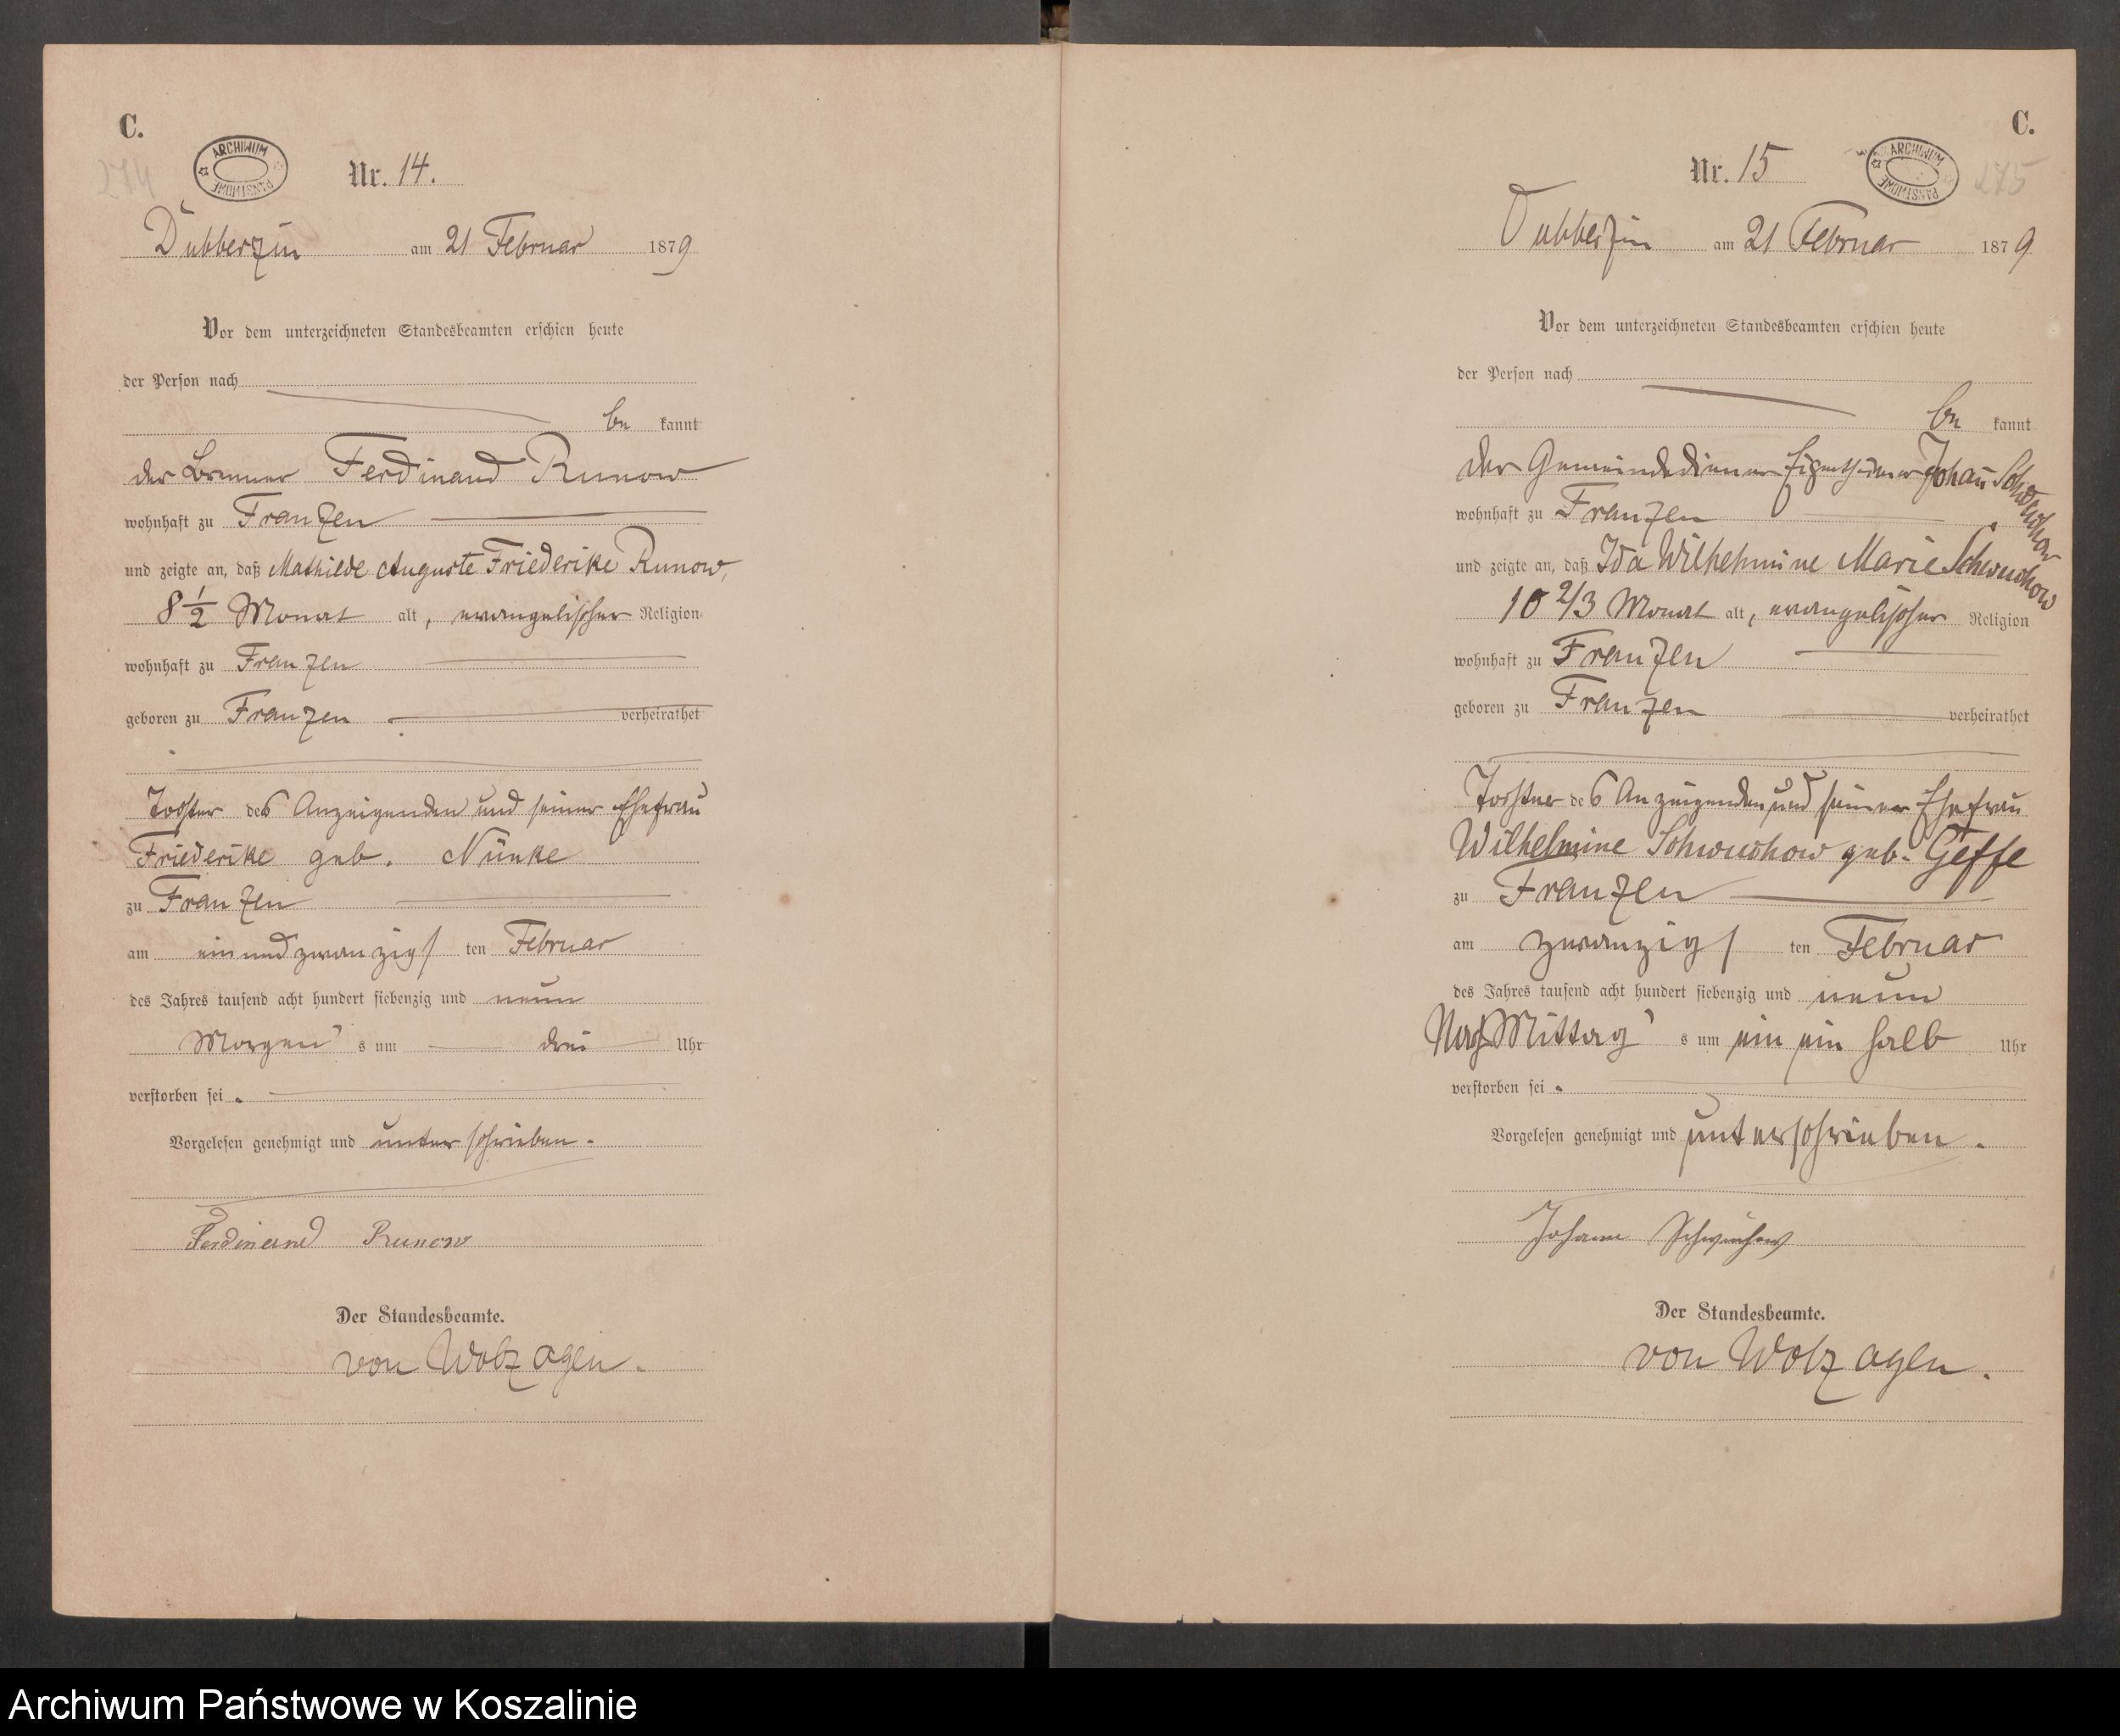 C.
274
ARCHIWUM PAŃSTWOWE
Nr. 14.
Dubberzin am 21 Februar 1879
Vor dem unterzeichneten Standesbeamten erschien heute
der Person nach
be kannt
der Brenner Ferdinand Runow
wohnhaft zu Franzen
und zeigte an, daß Mathilde Auguste Friederike Runow,
8 1/2 Monat alt, evangelischer Religion
wohnhaft zu Franzen
geboren zu Franzen verheirathet
Tochter des Anzeigenden und seiner Ehefrau
Friederike geb. Nünke
zu Franzen
am ein und zwanzigs ten Februar
des Jahres tausend acht hundert siebenzig und neun
Morgen s um drei Uhr
verstorben sei.
Vorgelesen genehmigt und unterschrieben.
Ferdinand Runow
Der Standesbeamte.
von Wolzogen.
C.
275
ARCHIWUM PAŃSTWOWE
Nr. 15
Dubberzin am 21 Februar 1879
Vor dem unterzeichneten Standesbeamten erschien heute
der Person nach
be kannt
der Gemeindediener Eigenthümer Johann Schwuchow
wohnhaft zu Franzen
und zeigte an, daß Ida Wilhelmine Marie Schwuchow
10 2/3 Monat alt, evangelischer Religion
wohnhaft zu Franzen
geboren zu Franzen verheirathet
Tochter des Anzeigenden und seiner Ehefrau
Wilhelmine Schwuchow geb. Geffe
zu Franzen
am zwanzigs ten Februar
des Jahres tausend acht hundert siebenzig und neun
Nach Mittag s um ein ein halb Uhr
verstorben sei.
Vorgelesen genehmigt und unterschrieben.
Johann Schwuchow
Der Standesbeamte.
von Wolzogen.
Archiwum Państwowe w Koszalinie